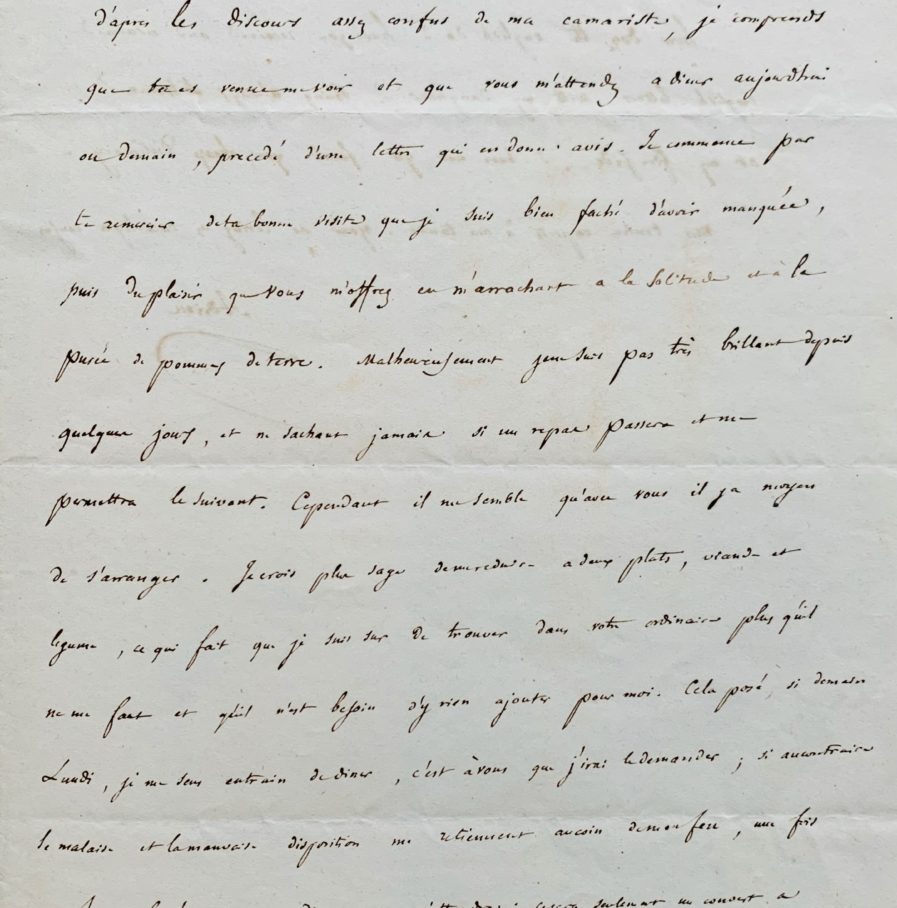 d'après les discours assez confus de ma camariste, je comprends
que tu es venue me voir et que vous m'attendez a diner aujourd'hui
ou demain, precedé d'une lettre qui en donne avis. Je commence par
te remercier de ta bonne visite que je suis bien faché d'avoir manquée,
puis du plaisir que vous m'offrez en m'arrachant a la solitude et à la
purée de pommes de terre. Malheureusement je ne suis pas très brillant depuis
quelques jours, et ne sachant jamais si un repas passera et me
permettra le suivant. Cependant il me semble qu'avec vous il y a moyen
de s'arranger. Je crois plus sage de me reduire a deux plats, viande et
legume, ce qui fait que je suis sur de trouver dans votre ordinaire plus qu'il
ne me faut et qu'il n'est besoin d'y rien ajouter pour moi. Cela posé, si demain
Lundi, je me sens entrain de diner, c'est à vous que j'irai le demander; si au contraire
le malaise et la mauvaise disposition me retiennent au coin de mon feu, une fois
seulement un couvert a